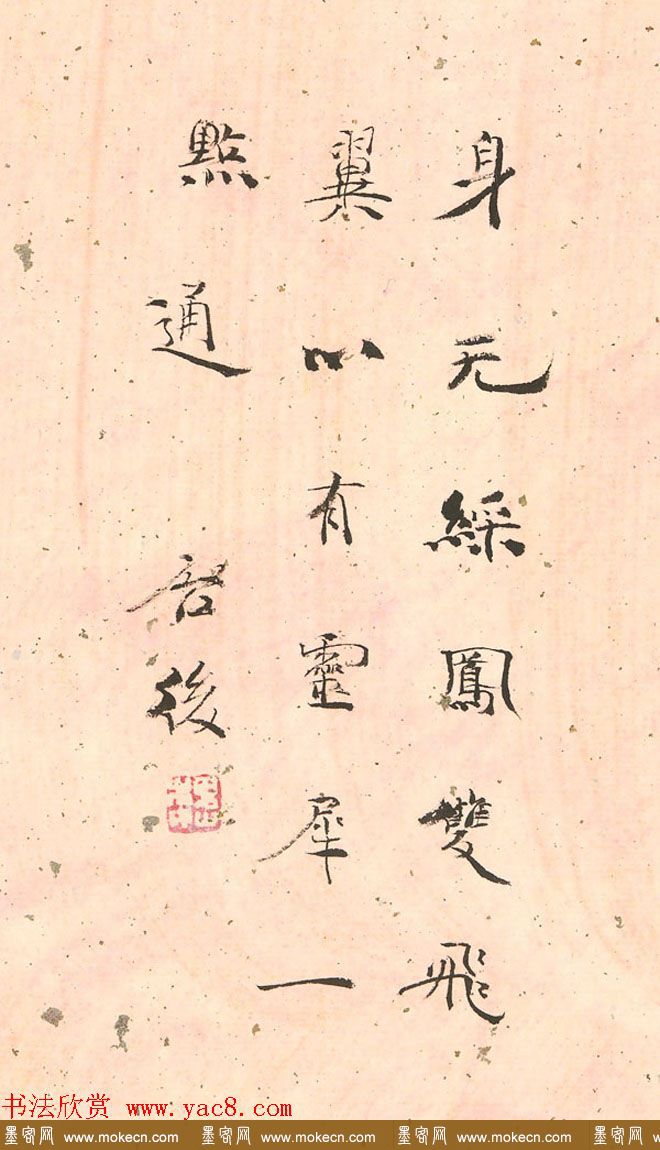 身无綵鳳雙飛
翼心有靈犀一
點通 後
书法欣赏 www.yac8.com
墨客网 www.mokecn.com 墨客网 www.mokecn.com 墨客网 www.mokecn.com 墨客网